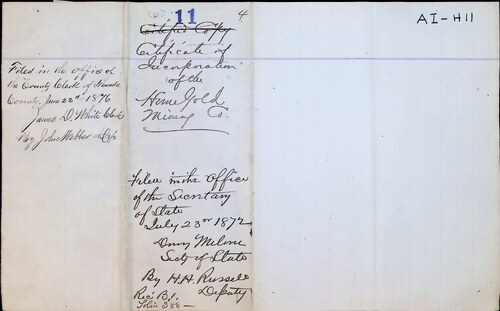 11
4
AI-H11
Certified Copy
Certificate of
Incorporation
of the
Gold
Mining Co.
Filed in the office of
the County Clerk of Nevada
County, June 22nd 1876
James D. White Clerk
By John Webber Dep
Filed in the Office
of the Secretary
of State
July 23rd 1872
Drury Melone
Secty of State
By H.H. Russell
Deputy
Rec B1.
Folio 388 —